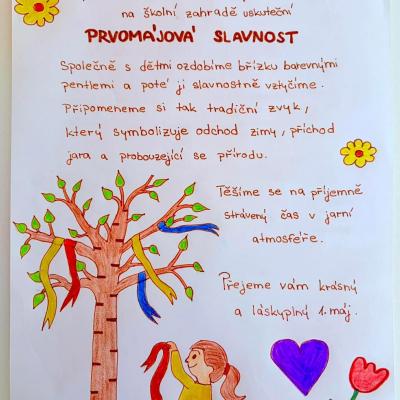 na školní zahradě uskuteční
PRVOMÁJOVÁ SLAVNOST
Společně s dětmi ozdobíme břízku barevnými
pentlemi a poté ji slavnostně vztyčíme.
Připomeneme si tak tradiční zvyk,
který symbolizuje odchod zimy, příchod
jara a probouzející se přírodu.
Těšíme se na příjemně
strávený čas v jarní
atmosféře.
Přejeme vám krásný
a láskyplný 1. máj.